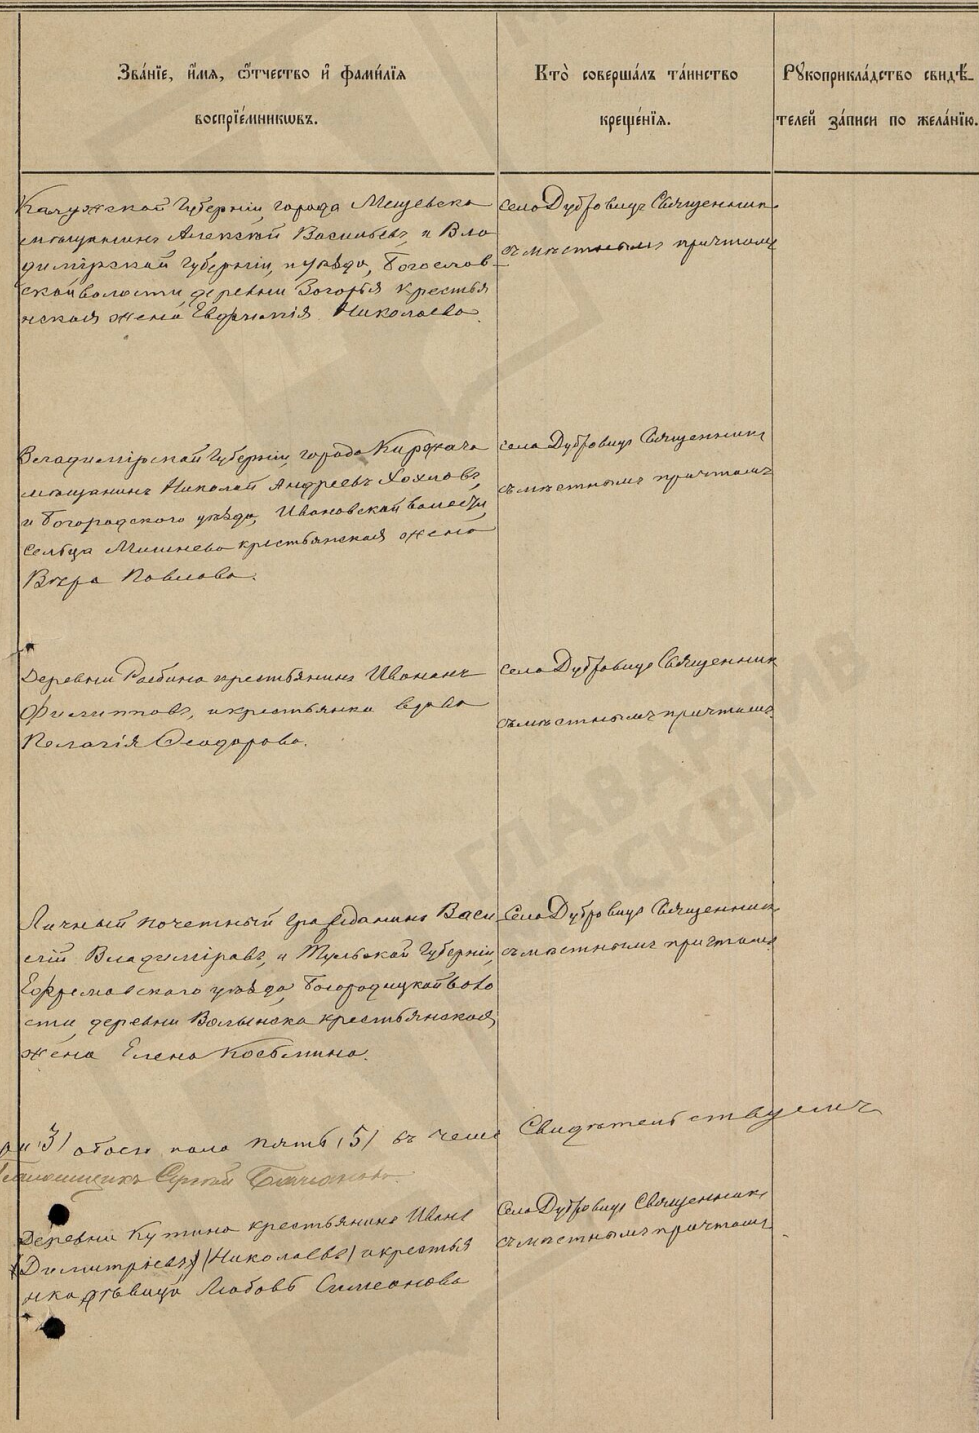 Зва́нїе, и҆́мя, ѻ҆́тчество и҆ фами́лїя
воспрїе́мникѡвъ.
Кто̀ соверша́лъ та́инство
креще́нїя.
Рꙋкоприкла́дство свидѣ́-
телей за́писи по жела́нїю.
Калужской Губерніи, города Мещевска
мѣщанинъ Алексѣй Васильевъ, и Вла
димірской губерніи, и уѣзда, Богослов-
ской волости, деревни Загорья крестья
нская жена Евфимія Николаева.
села Дубровицъ Священникъ
съ мѣстнымъ причтомъ
Владимірской Губерніи, города Киржача
мѣщанинъ Николай Андреевъ Хохловъ,
и Богородского уѣзда, Ивановской волости,
сельца Мишнева крестьянская жена
Вѣра Павлова.
села Дубровицъ Священникъ
съ мѣстнымъ причтомъ
Деревни крестьянинъ
Филипповъ, и крестьянка вдова
Пелагія Ѳеодорова.
села Дубровицъ Священник
съ мѣстнымъ причтомъ
Личный почетный гражданинъ Васи
лій Владиміровъ, и Тульской Губерніи,
Ефремовского уѣзда, Богородицкой воло
сти, деревни Волынска крестьянская
жена Елена Косьмина.
Села Дубровицъ Священникъ
съ мѣстнымъ причтомъ
3) обоего пола пять (5) въ чемъ Свидѣтельствуемъ
Сергѣй
Деревни Кутина крестьянинъ Иванъ
(Димитріевъ) (Николаевъ) и крестья
нка дѣвица Любовь Симеонова
Села Дубровицъ Священникъ
съ мѣстнымъ причтомъ
ГЛАВАРХИВ
МОСКВЫ